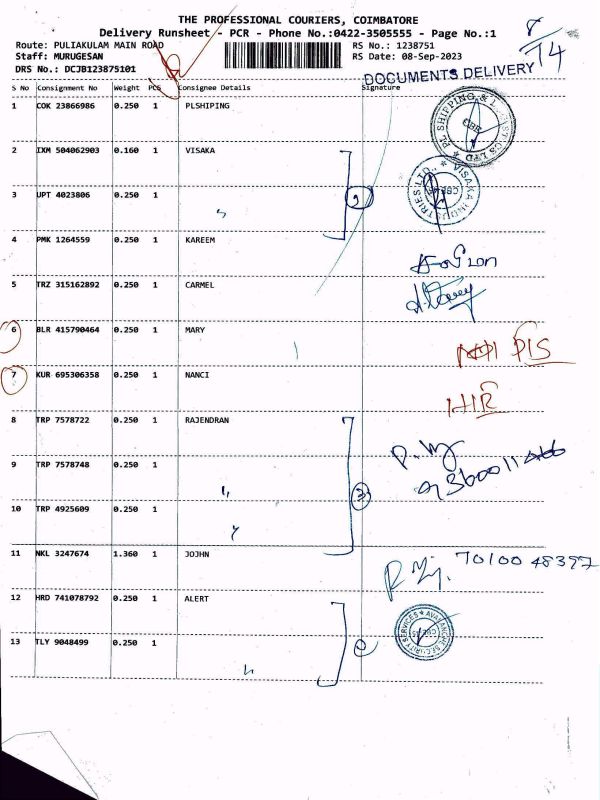 THE PROFESSIONAL COURIERS, COIMBATORE
Delivery Runsheet - PCR - Phone No.:0422-3505555 - Page No.:1
Route: PULIAKULAM MAIN ROAD
RS No.: 1238751
Staff: MURUGESAN
RS Date: 08-Sep-2023
DRS No.: DCJB123875101
8/14
DOCUMENTS DELIVERY
S No Consignment No Weight PCS Consignee Details Signature
1 COK 23866986 0.250 1 PLSHIPING
2 IXM 504062903 0.160 1 VISAKA
3 UPT 4023806 0.250 1 "
4 PMK 1264559 0.250 1 KAREEM
5 TRZ 315162892 0.250 1 CARMEL
6 BLR 415790464 0.250 1 MARY
7 KUR 695306358 0.250 1 NANCI
HIR
8 TRP 7578722 0.250 1 RAJENDRAN
9 TRP 7578748 0.250 1 "
10 TRP 4925609 0.250 1 "
11 NKL 3247674 1.360 1 JOJHN
70100 48397
12 HRD 741078792 0.250 1 ALERT
AVALANCHE SECURITY SERVICES
13 TLY 9048499 0.250 1 "